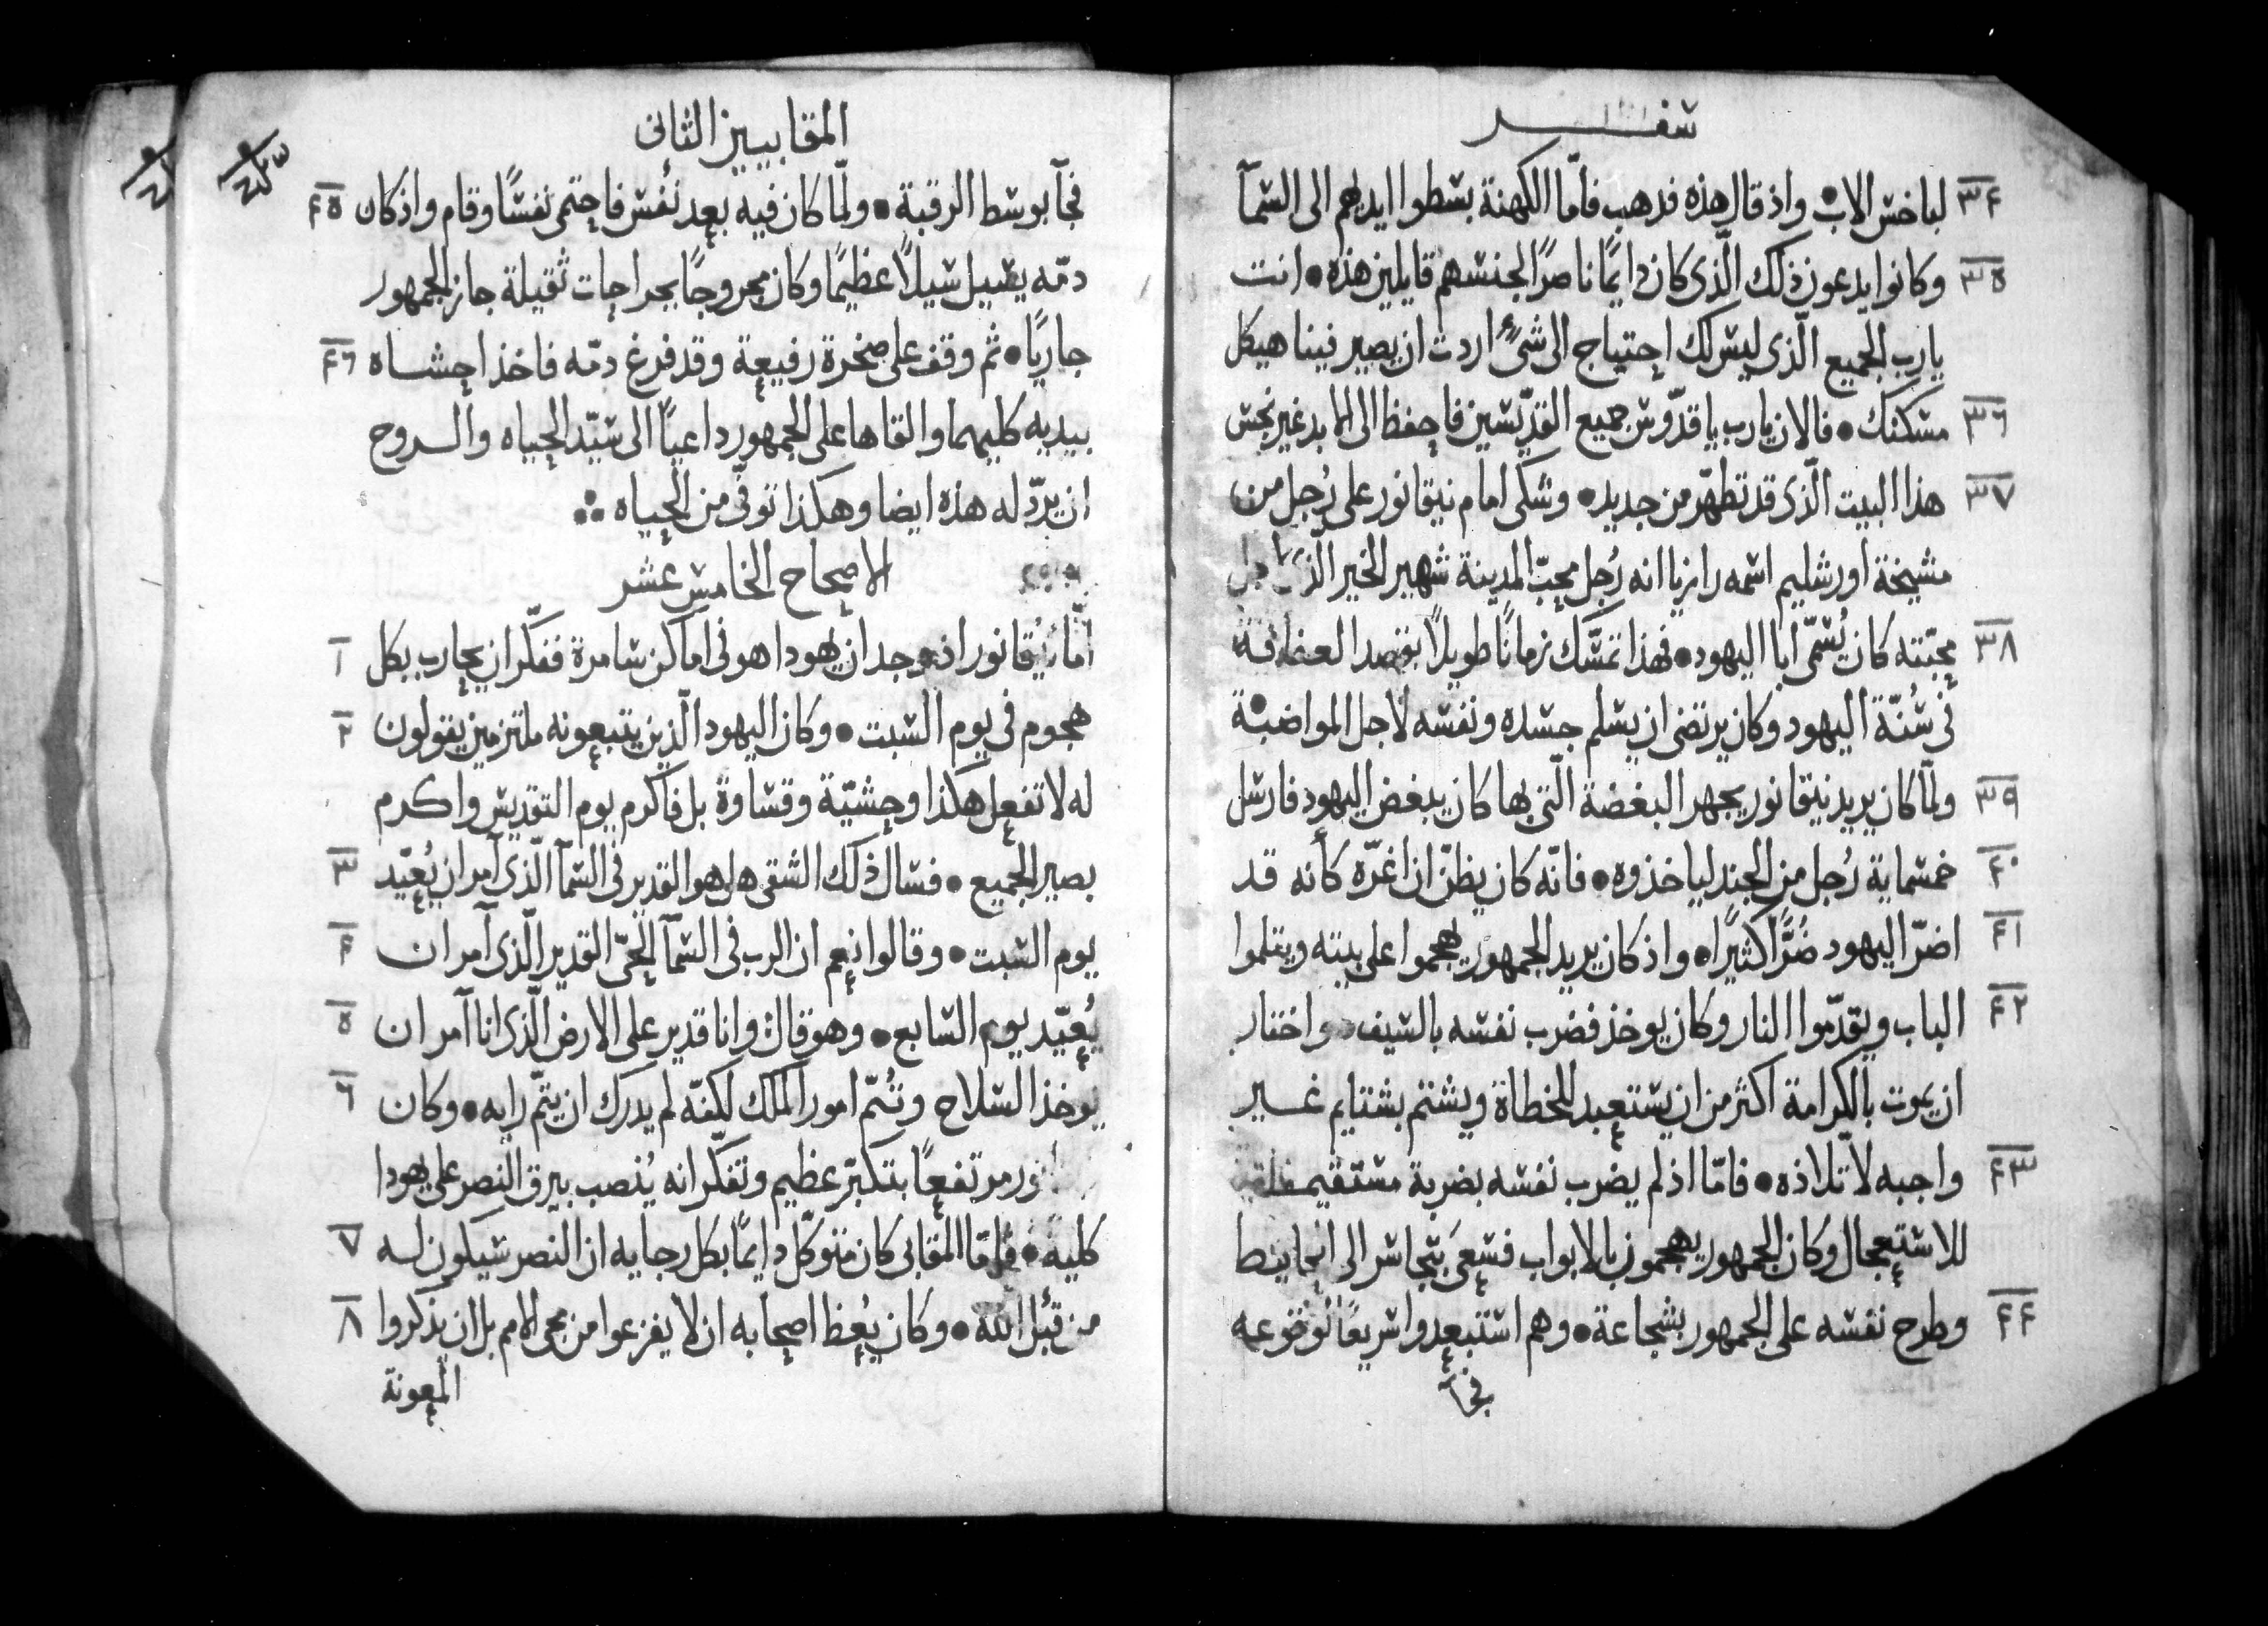 سفر
٣٤ لباخس الاب • واذ قال هذه فدهب فامّا الكهنة بسطوا ايديهم الى السمآ
٣٥ وكانوا يدعون ذلك الّذى كان دايمًا ناصرًا لجنسهم قايلين هذه • انت
يارب الجميع الّذى ليس لك احتياج الى شىءٍ اردت ان يصير فينا هيكل
٣٦ مسكنك • فالان يارب يا قدّوس جميع القدّيسين فاحفظ الى الابد غير نجس
٣٧ هذا البيت الّذى قد تطهّر من جديد • وشكى امام نيقانور على رُجل من
مشيخة اورشليم اسمه رازيا انه رُجل محبّ المدينة شهير الخير الّذى لاجل
٣٨ محبّته كان يُسمّى ابا اليهود • فهذا تمسّك زمانًا طويلاً بقصد العفافة
فى سُنّة اليهود وكان يرتضى ان يسلم جسده ونفسه لاجل المواضبة
٣٩ ولمّا كان يريد نيقانور يجهر البغضة الّتى بها كان يبغض اليهود فارسل
٤٠ خمسماية رُجل من الجند لياخذوه • فانّه كان يظنّ ان اغرّه كأنه قد
٤١ اضرّ اليهود ضُرًّا كثيرًا • واذ كان يريد الجمهور يهجموا على بيته ويتلموا
٤٢ الباب ويقدّموا النار وكان يوخذ فضرب نفسه بالسيف • واختار
ان يموت بالكرامة اكثر من ان يستعبد للخطاة ويشتم بشتايم غير
٤٣ واجبه لاتلاذه • فامّا اذ لم يضرب نفسه بضربة مستقيمة
للاستعجال وكان الجمهور يهجمون بالابواب فسعىَ بتجاسر الى الحايط
٤٤ وطرح نفسه على الجمهور بشجاعة • وهم استبعدوا سريعًا لوقوعه
فجآ
المقابيين الثانى
فجآ بوسط الرقبة • ولمّا كان فيه بعد نَفَس فاحتمى نفسًا وقام واذ كان ٤٥
دمّه يسيل سيلاً عظيمًا وكان مجروحًا بجراحات ثقيلة جاز الجمهور
جاريًا • ثم وقف على صخرة رفيعة وقد فرغ دمّه فاخذ احشاه ٤٦
بيديه كليهما والقاها على الجمهور داعيًا الى سيّد الحياه والروح
ان يردّ له هذه ايضا وهكذا توفّى من الحياه
الاصحاح الخامس عشر
امّا نيقانور اذ وجد ان يهودا هو فى اماكن سامرة ففكّر ان يحارب بكل ١
هجوم فى يوم السبت • وكان اليهود الّذين يتبعونه ملتزمين يقولون ٢
له لا تفعل هكذا وحشيّة وقساوة بل فاكرم يوم التقديس واكرم
بصير الجميع • فسال ذلك الشقى هل هو القدير فى السمآ الّذى آمر ان يُعيّد ٣
يوم السبت • وقالوا نعم ان الرب فى السمآ الحىّ القدير الّذى آمر ان ٤
يُعيّد يوم السابع • وهو قال وانا قدير على الارض الّذى انا آمر ان ٥
يوخذ السلاح وتُتمّ امور الملك لكنّه لم يدرك ان يتمّ رايه • وكان ٦
مرتفعًا بتكبّر عظيم وتفكّر انه يُنصب بيرق النصر على يهودا
كليةً • فامّا المقابى كان متوكّل دايمًا بكل رجايه ان النصر سيكون له ٧
من قبُل الله • وكان يُعظ اصحابه ان لا يفزعوا من مجى الامم بل ان يذكروا ٨
المعونة